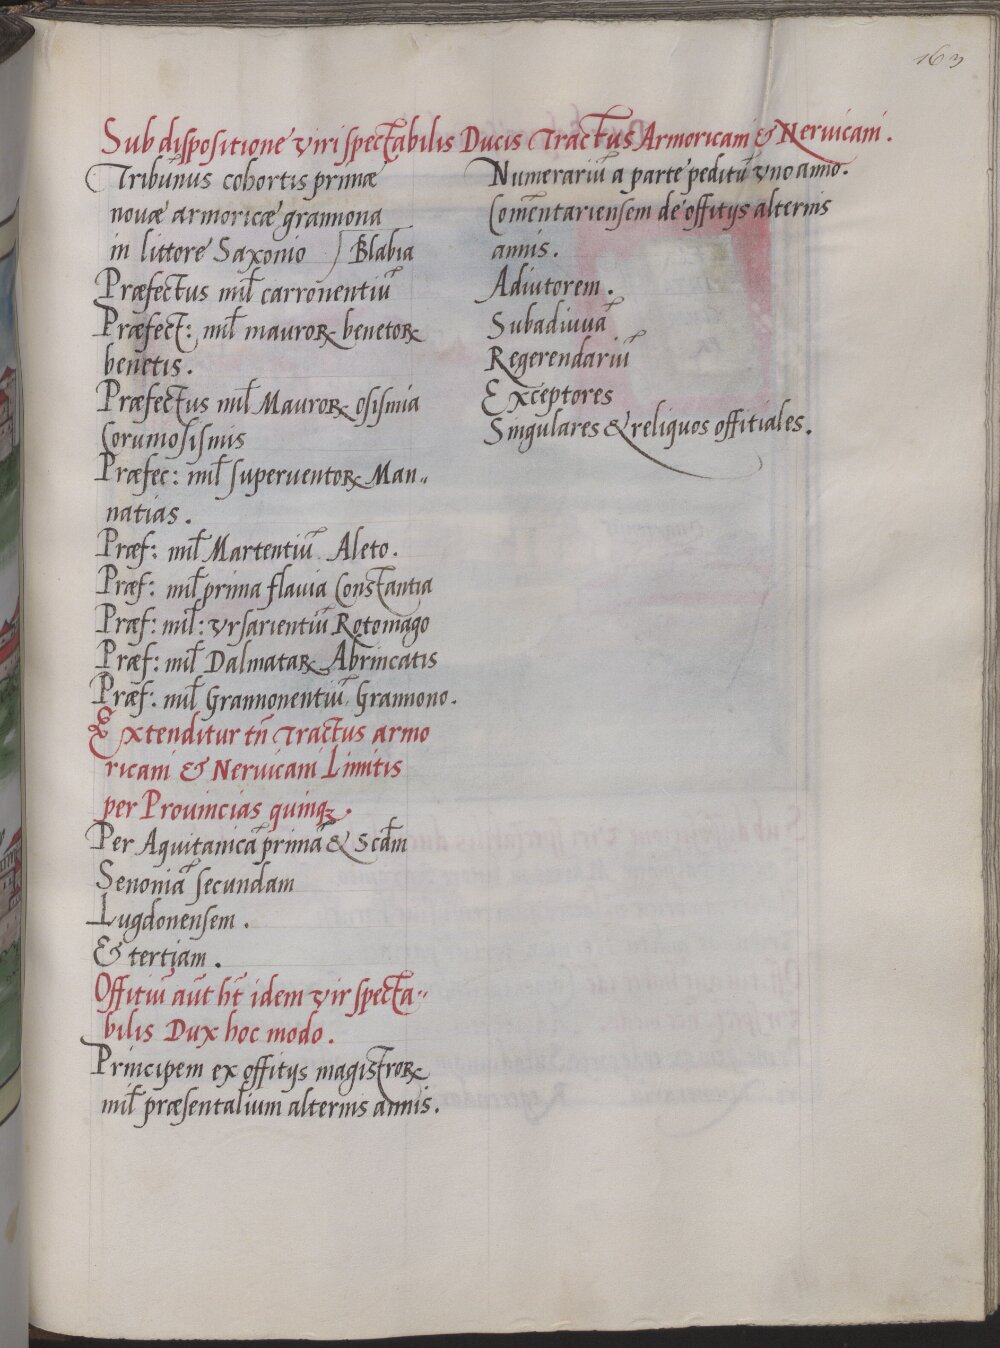 163
Sub dispositione viri spectabilis Ducis Tractus Armoricani & Neruicani.
Tribunus cohortis primæ
nouæ armoricæ grannona
in littore Saxonio / Blabia
Præfectus mil̃ carronentiũ
Præfect: mil̃ mauroꝝ benetoꝝ
benetis.
Præfectus mil̃ Mauroꝝ osismia
Corumosismis
Præfec: mil̃ superuentoꝝ Man„
natias.
Præf: mil̃ Martentiũ Aleto.
Præf: mil̃ prima flauia Constantia
Præf: mil̃: vrsarientiũ Rotomago
Præf: mil̃ Dalmataꝝ Abrincatis
Præf: mil̃ Grannonentiũ Grannono.
Extenditur tñ Tractus armo
ricani & Neruicani Limitis
per Prouincias quinqꝫ.
Per Aquitanicã primã & Scdm̃
Senoniã secundam
Lugdonensem.
& tertiam.
Offitiũ aũt hт̃ idem vir specta„
bilis Dux hoc modo.
Principem ex offitijs magistroꝝ
mil̃ præsentalium alternis annis.
Numerariũ a parte peditũ vno anno.
Com̃entariensem de offitijs alternis
annis.
Adiutorem.
Subadiuuã
Regerendariũ
Exceptores
Singulares & reliquos offitiales.